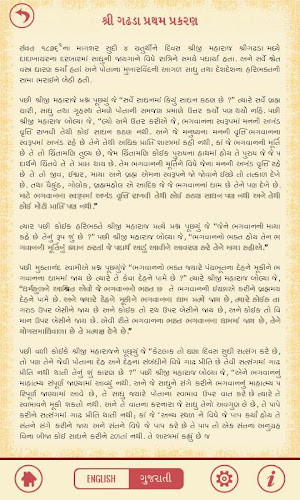 શ્રી ગઢડા પ્રથમ પ્રકરણ
સંવત ૧૮૭૬ ના માગશર સુદી ૪ ચતુર્થીને દિવસ શ્રીજી મહારાજ શ્રીગઢડા મધ્યે
દાદાખાચરના દરબારમાં સાધુની જાયગાને વિષે રાત્રિને સમયે પધાર્યા હતા. અને સર્વે શ્વેત
વસ્ત્ર ધારણ કર્યાં હતાં અને પોતાના મુખારવિંદની આગળ સાધુ તથા દેશદેશના હરિભક્તની
સભા ભરાઈને બેઠી હતી.
પછી શ્રીજી મહારાજે પ્રશ્ન પૂછ્યું જે “સર્વે સાધનમાં કિયું સાધન કઠણ છે ?” ત્યારે સર્વે બ્રહ્મ
ચારી, સાધુ તથા ગૃહસ્થ તેમણે પોતાની સમજણ પ્રમાણે ઉત્તર કર્યો પણ થયો નહિ. પછી
શ્રીજી મહારાજ બોલ્યા જે, “લ્યો અમે ઉત્તર કરીએ જે, ભગવાનના સ્વરૂપમાં મનની અખંડ
વૃત્તિ રાખવી તેથી કોઈ સાધન કઠણ નથી. અને જે મનુષ્યના મનની વૃત્તિ ભગવાનના
સ્વરૂપમાં અખંડ રહે છે તેને તેથી અધિક પ્રાપ્તિ શાસ્ત્રમાં કહી નથી, કાં જે ભગવાનની મૂર્તિ
છે તે તો ચિંતામણિ તુલ્ય છે, જેમ ચિંતામણિ કોઈક પુરુષના હાથમાં હોય તે પુરુષ જે જે પ
દાર્થને ચિંતવે તે તે પ્રાપ્ત થાય છે, તેમ ભગવાનની મૂર્તિને વિષે જેના મનની અખંડ વૃત્તિ રહે
છે તે તો જીવ, ઈશ્વર, માયા અને બ્રહ્મ એમના સ્વરૂપને જો જોવાને ઈચ્છે તો તત્કાળ દેખે
છે. તથા વૈકુંઠ, ગોલોક, બ્રહ્મમહોલ એ આદિક જે જે ભગવાનનાં ધામ છે તેને પણ દેખે છે.
માટે ભગવાનના સ્વરૂપમાં અખંડ વૃત્તિ રાખવી તેથી કોઈ કઠણ સાધન પણ નથી અને તેથી
કોઈ મોટી પ્રાપ્તિ પણ નથી.”
ત્યાર પછી કોઈક હરિભક્તે શ્રીજી મહારાજ પ્રત્યે પ્રશ્ન પૂછ્યું જે “જેને ભગવાનની માયા
કહે છે તેનું રૂપ શું છે ?” પછી શ્રીજી મહારાજ બોલ્યા જે, “ભગવાનનો ભક્ત હોય તેને ભ
ગવાનની મૂર્તિનું ધ્યાન કરતાં જે પદાર્થ આડું આવીને આવરણ કરે તેને માયા કહીએ.”
પછી મુક્તાનંદ સ્વામીએ પ્રશ્ન પૂછ્યું જે “ભગવાનનો ભક્ત જ્યારે પંચભૂતના દેહને મૂકીને ભ
ગવાનના ધામમાં જાય છે ત્યારે તે કેવા દેહને પામે છે ?” ત્યારે શ્રીજી મહારાજ બોલ્યા જે,
“ધર્મકુળને આશ્રિત એવો જે ભગવાનનો ભક્ત છે તે ભગવાનની ઈચ્છાએ કરીને બ્રહ્મમય
દેહને પામે છે. અને જ્યારે દેહને મૂકીને ભગવાનના ધામ પ્રત્યે જાય છે, ત્યારે કોઈક તો
ગરુડ ઉપર બેસીને જાય છે અને કોઈક તો રથ ઉપર બેસીને જાય છે, અને કોઈક તો વિ
માન ઉપર બેસીને જાય છે. એવી રીતે ભગવાનના ભક્ત ભગવાનના ધામમાં જાય છે, તેને
યોગસમાધિવાળા છે તે પ્રત્યક્ષ દેખે છે.”
પછી વળી કોઈકે શ્રીજી મહારાજને પૂછ્યું જે “કેટલાક તો ઘણા દિવસ સુધી સત્સંગ કરે છે,
તો પણ તેને જેવી પોતાના દેહ અને દેહના સંબંધીને વિષે ગાઢ પ્રીતિ છે તેવી સત્સંગમાં ગાઢ
પ્રીતિ નથી થાતી તેનું શું કારણ છે ?” પછી શ્રીજી મહારાજ બોલ્યા જે, “એને ભગવાનનું
માહાત્મ્ય સંપૂર્ણ જાણ્યામાં આવ્યું નથી. અને જે સાધુને સંગે કરીને ભગવાનનું માહાત્મ્ય પ
રિપૂર્ણ જાણ્યામાં આવે છે, તે સાધુ જ્યારે પોતાના સ્વભાવ ઉપર વાત કરે છે ત્યારે તે
સ્વભાવને મૂકી શકતો નથી. અને તે વાતના કરનારા જે સાધુ તેનો અવગુણ લે છે, તે પાપે
કરીને સત્સંગમાં ગાઢ પ્રીતિ થાતી નથી, કાં જે ‘અન્ય સ્થળ ને વિષે જે પાપ કર્યાં હોય તે
સંતને સંગે કરીને જાય અને સંતને વિષે જે પાપ કરે છે તે પાપ તો એક સંતના અનુગ્રહ
વિના બીજા કોઈ સાધને કરીને ટળતાં નથી. તે શાસ્ત્રમાં કહ્યું છે જ
ENGLISH ગુજરાતી